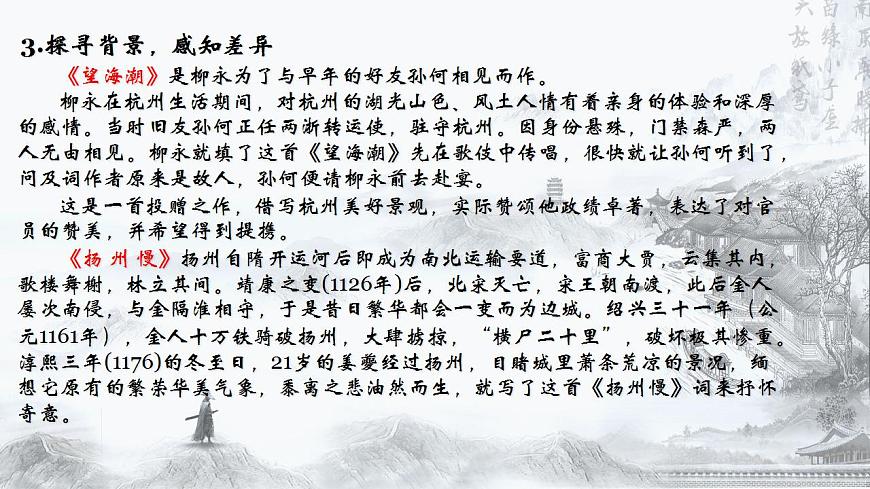 3.探寻背景，感知差异
《望海潮》是柳永为了与早年的好友孙何相见而作。
柳永在杭州生活期间，对杭州的湖光山色、风土人情有着亲身的体验和深厚
的感情。当时旧友孙何正任两浙转运使，驻守杭州。因身份悬殊，门禁森严，两
人无由相见。柳永就填了这首《望海潮》先在歌伎中传唱，很快就让孙何听到了，
问及词作者原来是故人，孙何便请柳永前去赴宴。
这是一首投赠之作，借写杭州美好景观，实际赞颂他政绩卓著，表达了对官
员的赞美，并希望得到提携。
《扬州慢》扬州自隋开运河后即成为南北运输要道，富商大贾，云集其内，
歌楼舞榭，林立其间。靖康之变(1126年)后，北宋灭亡，宋王朝南渡，此后金人
屡次南侵，与金隔淮相守，于是昔日繁华都会一变而为边城。绍兴三十一年（公
元1161年），金人十万铁骑破扬州，大肆掳掠，“横尸二十里”，破坏极其惨重。
淳熙三年(1176)的冬至日，21岁的姜夔经过扬州，目睹城里萧条荒凉的景况，缅
想它原有的繁荣华美气象，黍离之悲油然而生，就写了这首《扬州慢》词来抒怀
寄意。